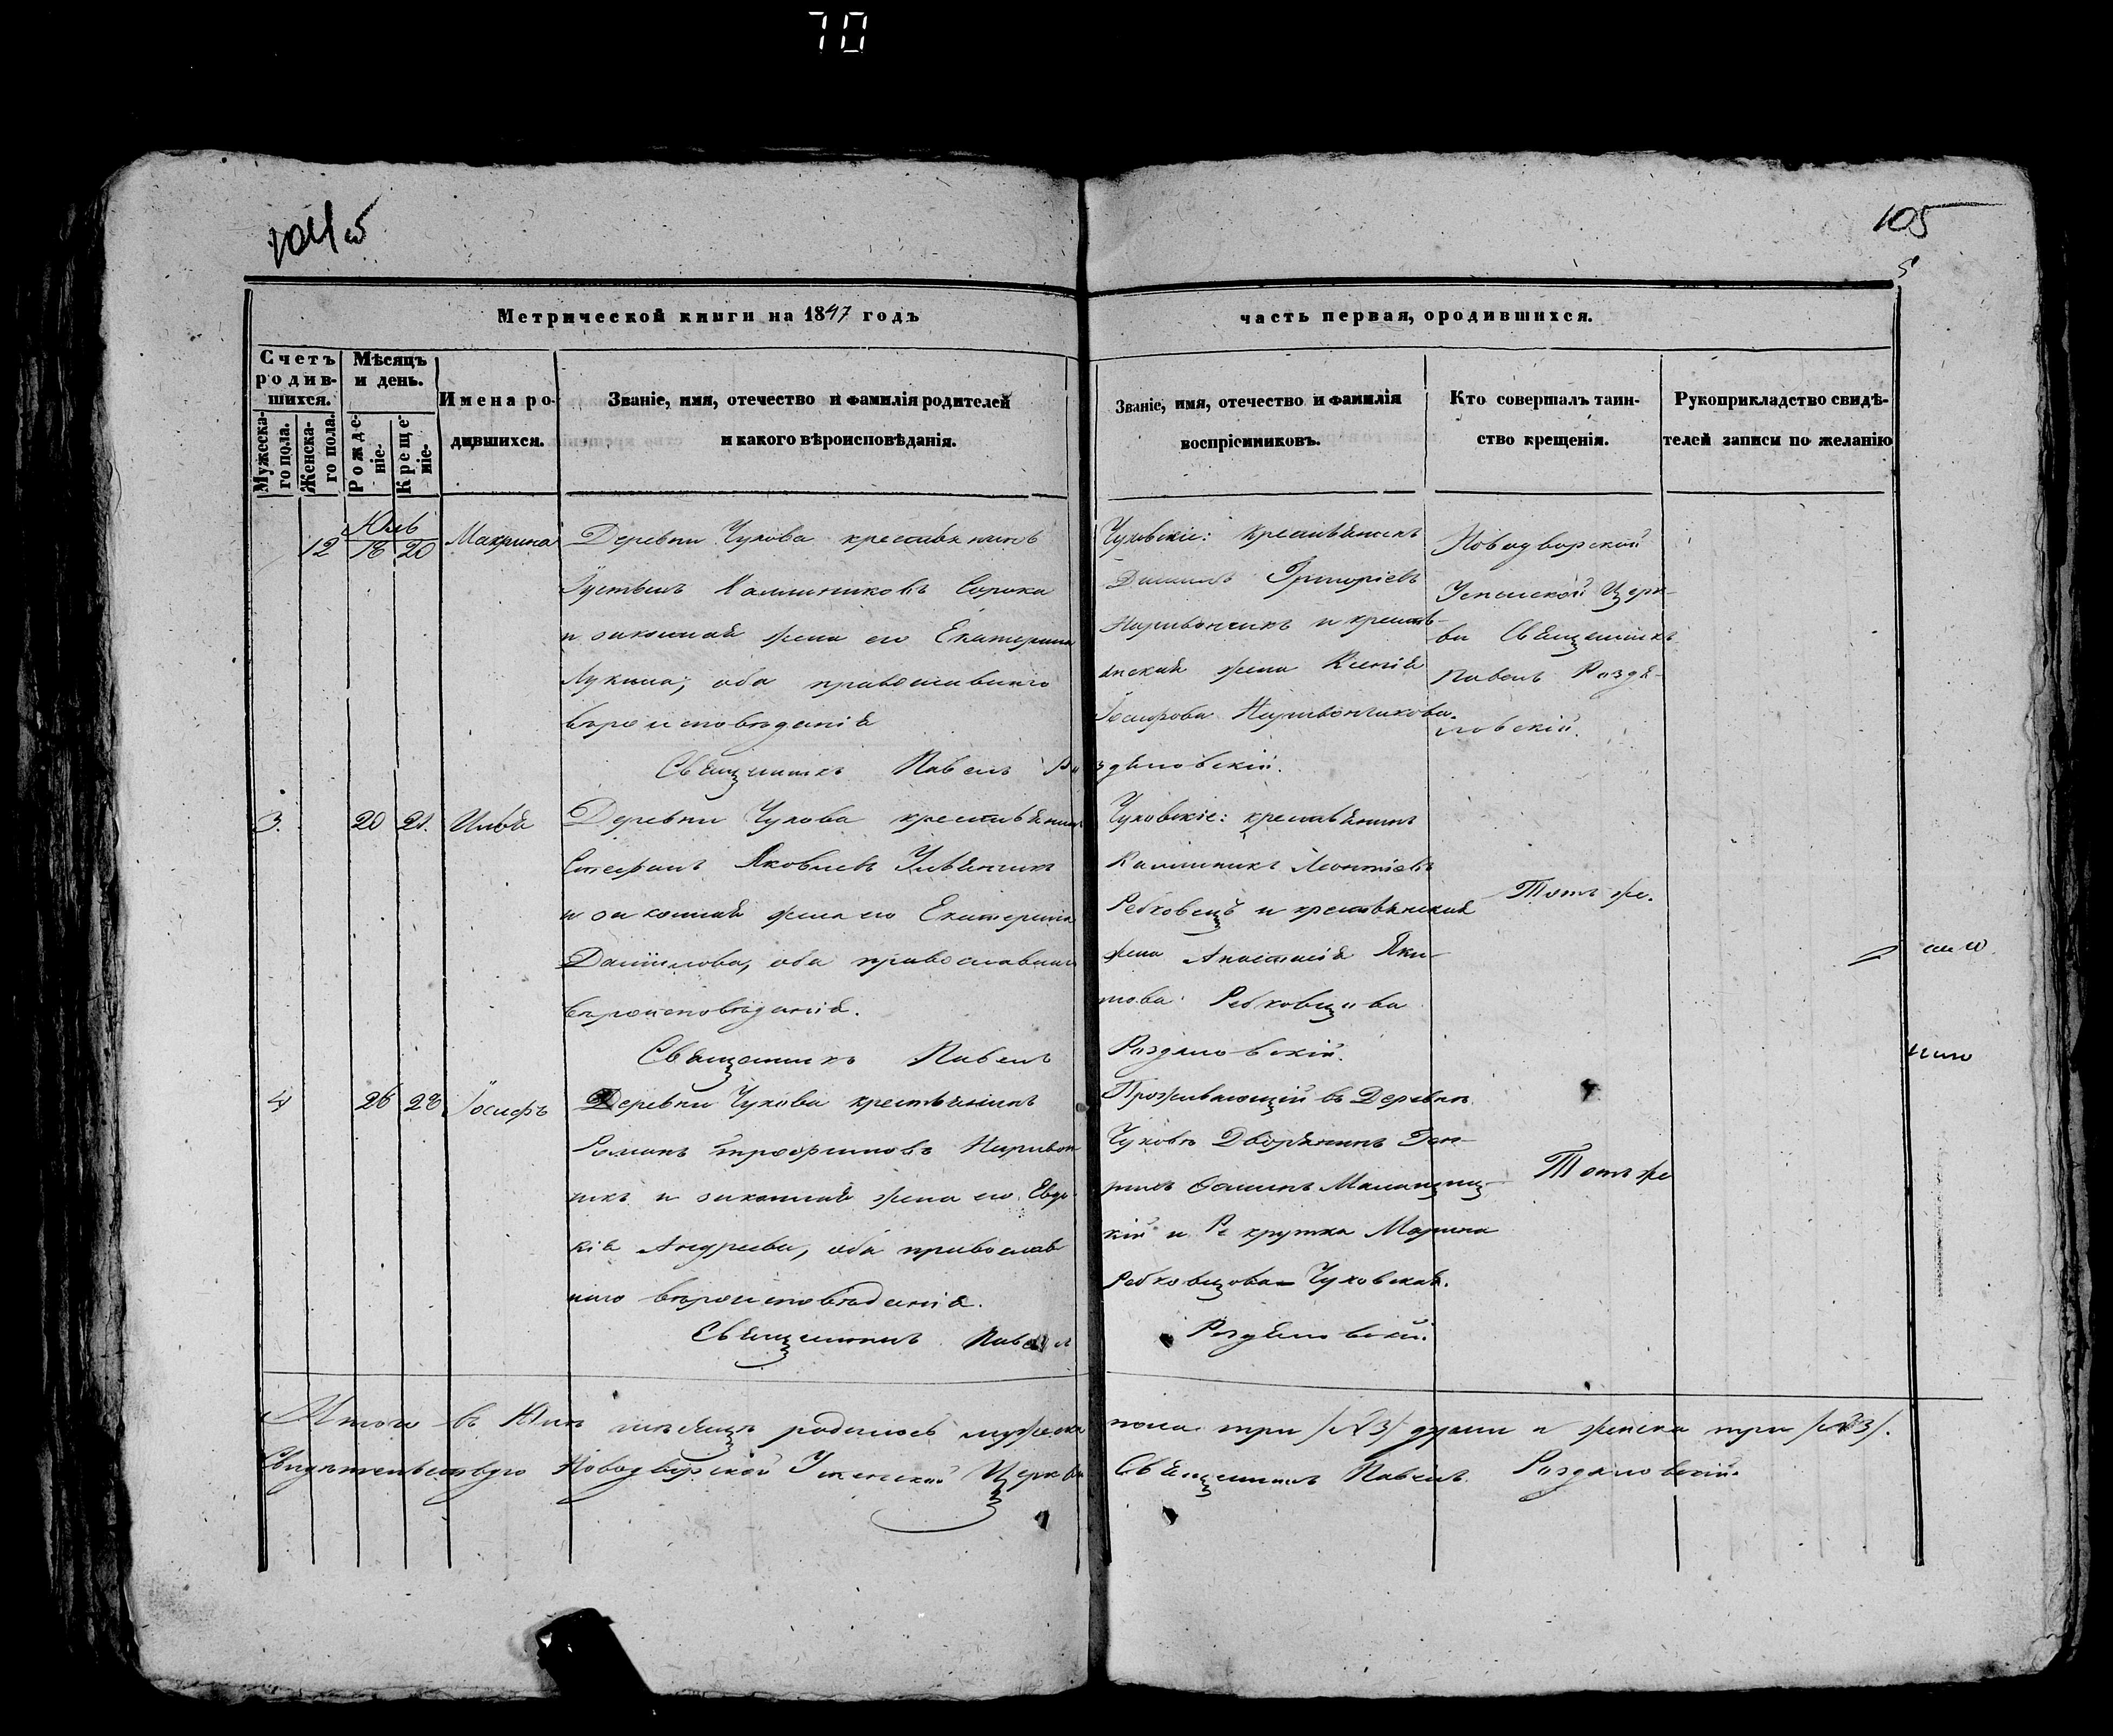 70
104 об
105
Метрической книги на 1847 годъ
часть первая, ородившихся.
Счетъ родив-шихся.
Мужеска-го пола.
Женска-го пола.
Мѣсяцъ и день.
Рожде-ніе.
Креще-ніе.
Имена ро-дившихся.
Званіе, имя, отечество и фамилія родителей
и какого вѣроисповѣданія.
Званіе, имя, отечество и фамилія
воспріемниковъ.
Кто совершалъ таин-
ство крещенія.
Рукоприкладство свидѣ-
телей записи по желанію
Юль
12 18 20 Макрина
Деревни Чухова крестьянинъ
Калиниковъ Сорока
и законная жена его Екатерина
Лукина; оба православнаго
вѣроисповѣданія
Священникъ Павелъ Роздяловскій.
Чуховскіе: крестьянинъ
Данилъ Григоріевъ
и крестьянская жена Ксенія
Іосифова
Новодворской
Успенской Церк-
ви Священникъ
Павелъ Роздя-
ловскій.
3. 20 21. Илья
Деревни Чухова крестьянинъ
Стефанъ Яковлевъ
и законная жена его Екатерина
Даніилова, оба православнаго
вѣроисповѣданія.
Священникъ Павелъ Роздяловскій.
Чуховскіе: крестьянинъ
Калиникъ Леонтіевъ
Ребковецъ и крестьянская
жена Анастасія
Ребковцова
Тотъ же.
4 26 28 Іосифъ
Деревни Чухова крестьянинъ
Романъ Трофимовъ
и законная жена его Евдо-
кія Андреева, оба православ
наго вѣроисповѣданія.
Священникъ Павелъ Роздяловскій.
Проживающій въ Деревнѣ
Чуховѣ Дворянинъ
и Рекрутка Марина
Ребковцова Чуховская.
Тотъ же
Итого въ Юлѣ мѣсяцѣ родилось мужеска пола три /№3/ души и женска три /№3/.
Новодворской Успенской Церкви Священникъ Павелъ Роздяловскій.